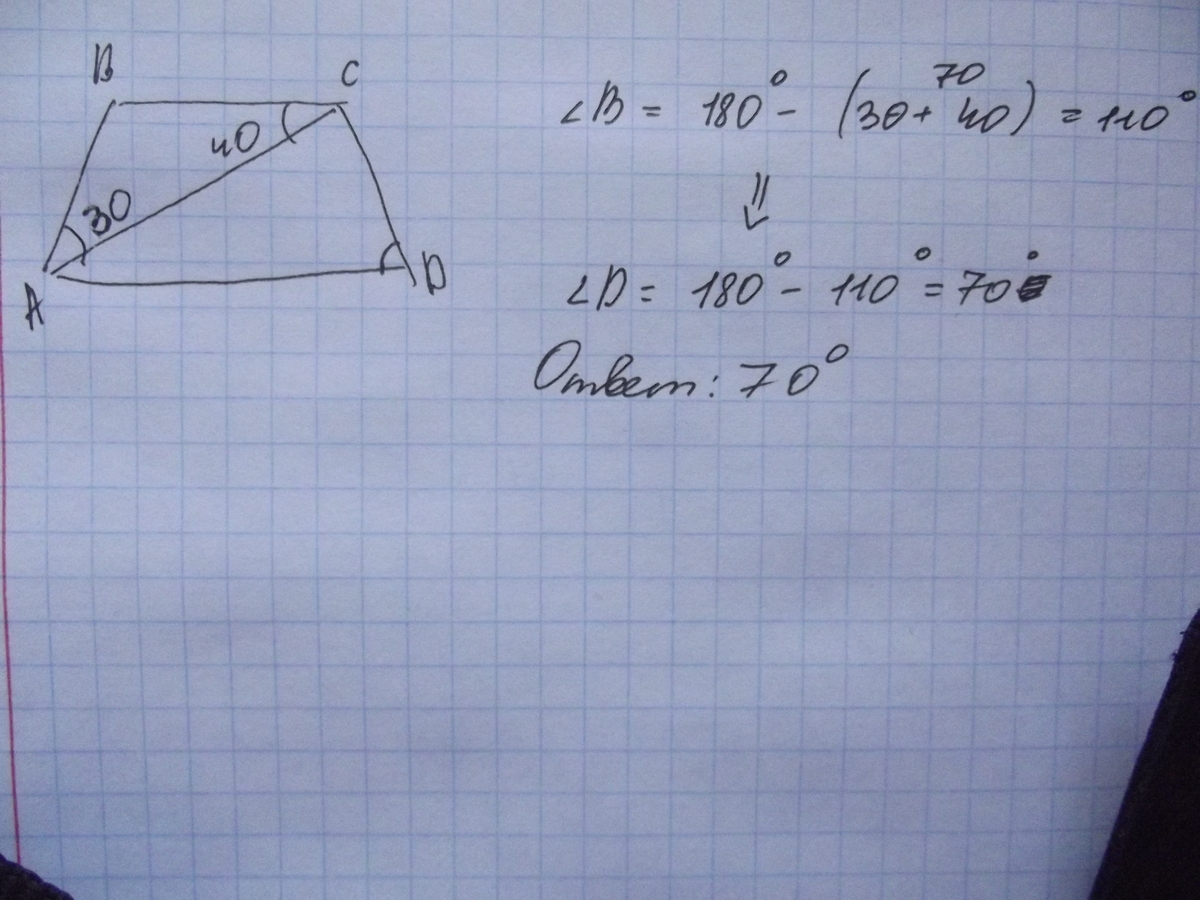 B
C
40
30
A
D
70
∠B = 180° - (30 + 40) = 110°
⇓
∠D = 180° - 110° = 70°
Ответ: 70°